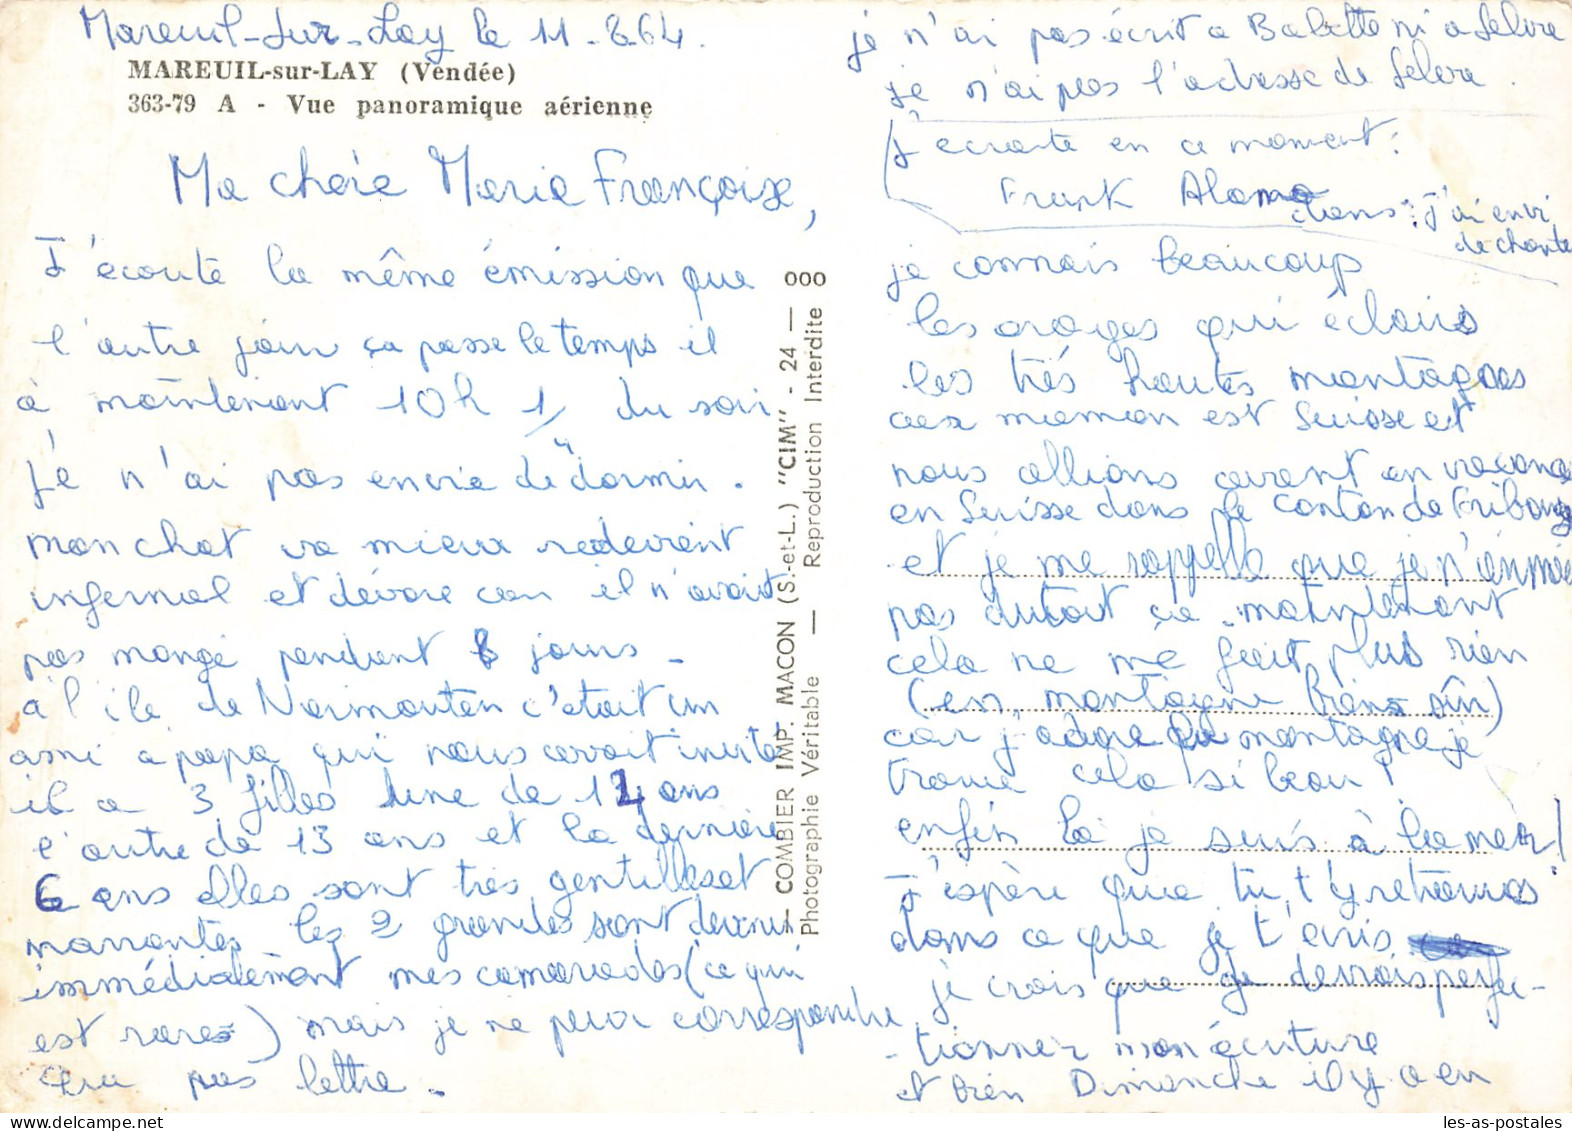 Mareuil-sur-Lay le 11-8-64.
MAREUIL-sur-LAY (Vendée)
363-79 A - Vue panoramique aérienne
Ma chère Marie Françoise,
J'écoute la même émission que
l'autre jour ça passe le temps il
à maintenant 10h 1/ du soir
je n'ai pas envie de dormir.
mon chat va mieux redevient
infernal et dévore car il n'avait
pas mangé pendant 8 jours.
à l'ile de Noirmoutier c'était un
ami a papa qui nous avait invité
il a 3 filles une de 14 ans
l'autre de 13 ans et la dernière
6 ans elles sont très gentilles et
marrantes les 2 grandes sont devenus
immédiatement mes camarades (ce qui
est rare) mais je ne peux correspondre
pas lettre.
COMBIER IMP. MACON (S.-et-L.) "CIM" - 24 — 000
Photographie Véritable — Reproduction Interdite
je n'ai pas écrit a Babette ni a
je n'ai pas l'adresse de
J'ecoute en ce moment :
Frank Alamo
dans : J'ai envi
de chante
je connais beaucoup
les orages qui éclairs
les très hautes montagnes
car maman est Suisse et
nous allions avant en vacance
en Suisse dans le canton de Fribourg
et je me rappelle que je n'aimais
pas dutout ça. maintenant
cela ne me fait plus rien
(en montagne bien sûr)
car j'adore la montagne je
trouve cela si beau !
enfin là je suis à la mer !
J'espère que tu t'y retrouves
dans ce que je t'écris
je crois que je devrais perfec-
-tionner mon écriture
et bien Dimanche il y a en
les-as-postales.com